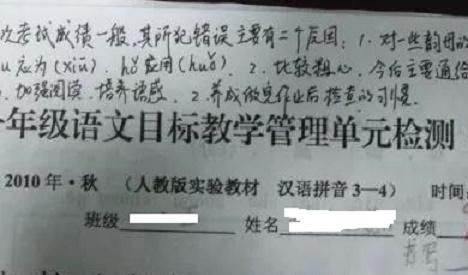 次考试成绩一般,其所犯错误主要有二个原因:1.对一些韵母的
u 应为(xiū) hǒ应用(huǒ) 2.比较粗心,今后主要通给
.加强阅读 培养语感. 2.养成做完作业后检查的习惯.
年级语文目标教学管理单元检测
2010年·秋 (人教版实验教材 汉语拼音3—4) 时间
班级 姓名 成绩
书写